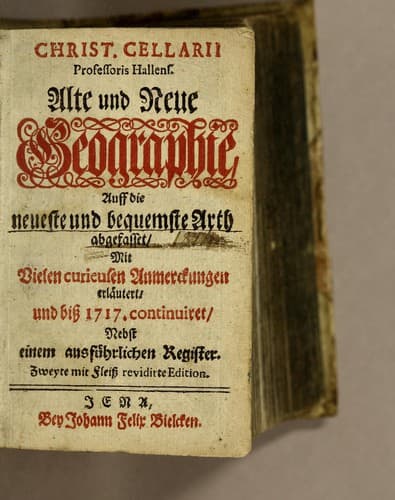 CHRIST. CELLARII
Professoris Hallens.
Alte und Neue
Geographie,
Auff die
neueste und bequemste Arth
abgefasset/
Mit
Vielen curieusen Anmerckungen
erläutert/
und biß 1717. continuiret/
Nebst
einem ausführlichen Register.
Zweyte mit Fleiß revidirte Edition.
JENA,
Bey Johann Felix Bielcken.